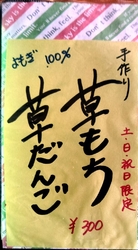 手作り
土・日・祝日限定
よもぎ 100%
草もち
草だんご
¥300